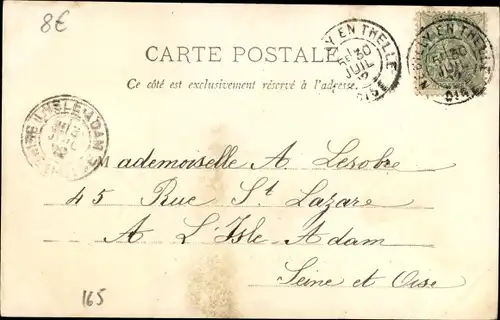 8€
CARTE POSTALE
Ce côté est exclusivement réservé à l'adresse.
Y EN THELLE
30
JUIL
OISE
Y EN THELLE
30
JUIL
L'ISLE-ADAM
Mademoiselle A. Lesobre
45 Rue St Lazare
A L'Isle-Adam
Seine et Oise
165